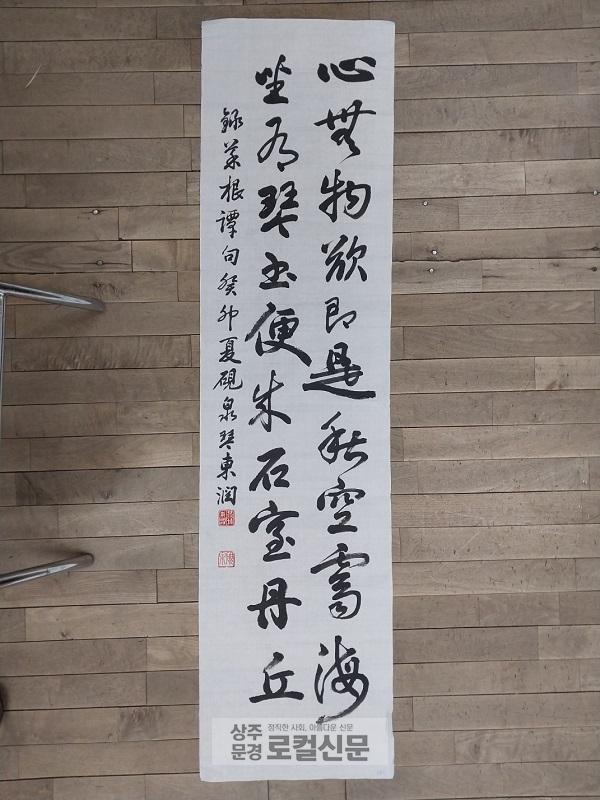 心無物欲即是秋空霽海
坐有琴書便成石室丹丘
錄菜根譚句癸卯夏硯泉琴東潤
상주 문경 정직한 사회, 아름다운 신문
로컬신문